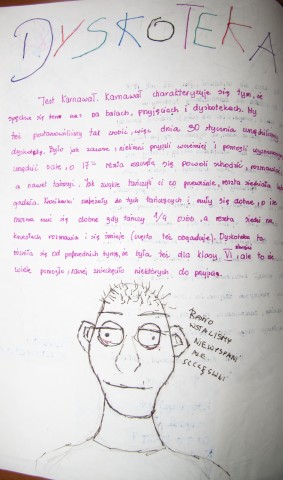 DYSKOTEKA
Jest Karnawał. Karnawał charakteryzuje się tym, że
spędza się ten czas na balach, przyjęciach i dyskotekach. My
też postanowiliśmy tak zrobić, więc dnia 30 stycznia urządziliśmy
dyskotekę. Było jak zawsze, niektórzy przyszli wcześniej i pomogli wychowawczyni
urządzić salę, o 17:00 reszta zaczęła się powoli schodzić, rozmawiać
a nawet tańczyć. Jak zwykle tańczyli ci co poprzednio, reszta siedziała i
gadała. należeli do tych tańczących i bawiły się dobrze, o ile
można się dobrze gdy tańczy 1/4 osób, a reszta siedzi na
krzesłach rozmawia i się śmieje (często też obgaduje). Dyskoteka ta
różniła się od poprzednich tym, że była też dla klasy VI, ale to nie
wiele pomogło, nawet zniechęciło niektórych do przyjścia.
RANO
WSTALIŚMY
NIEWYSPANI
ALE
SZCZĘŚLIWI